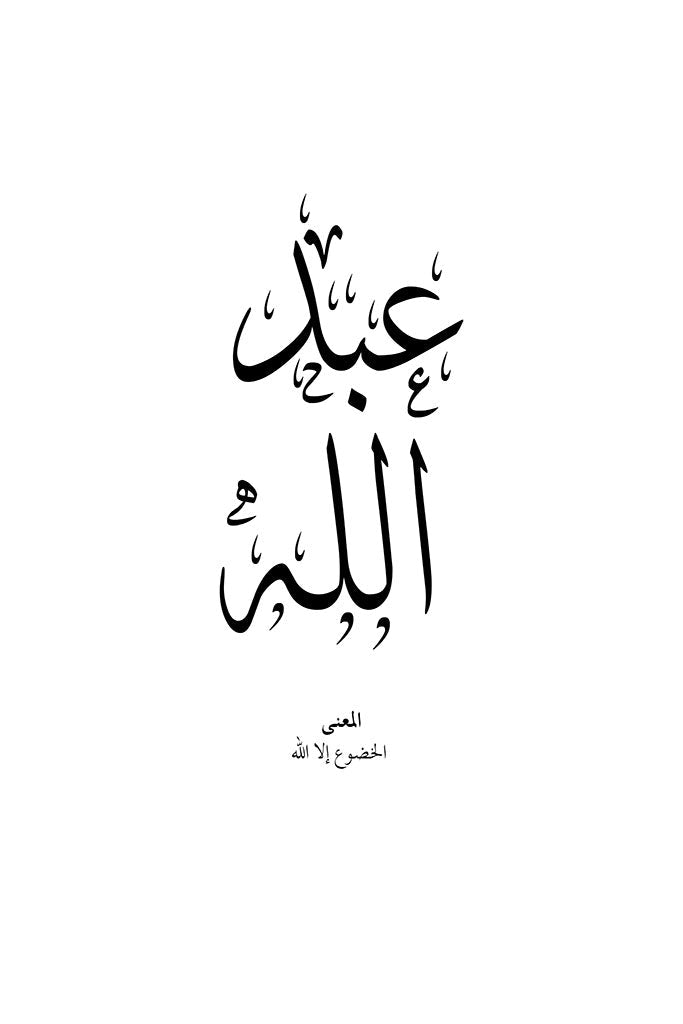 عبد
الله
المعنى
الخضوع إلا الله